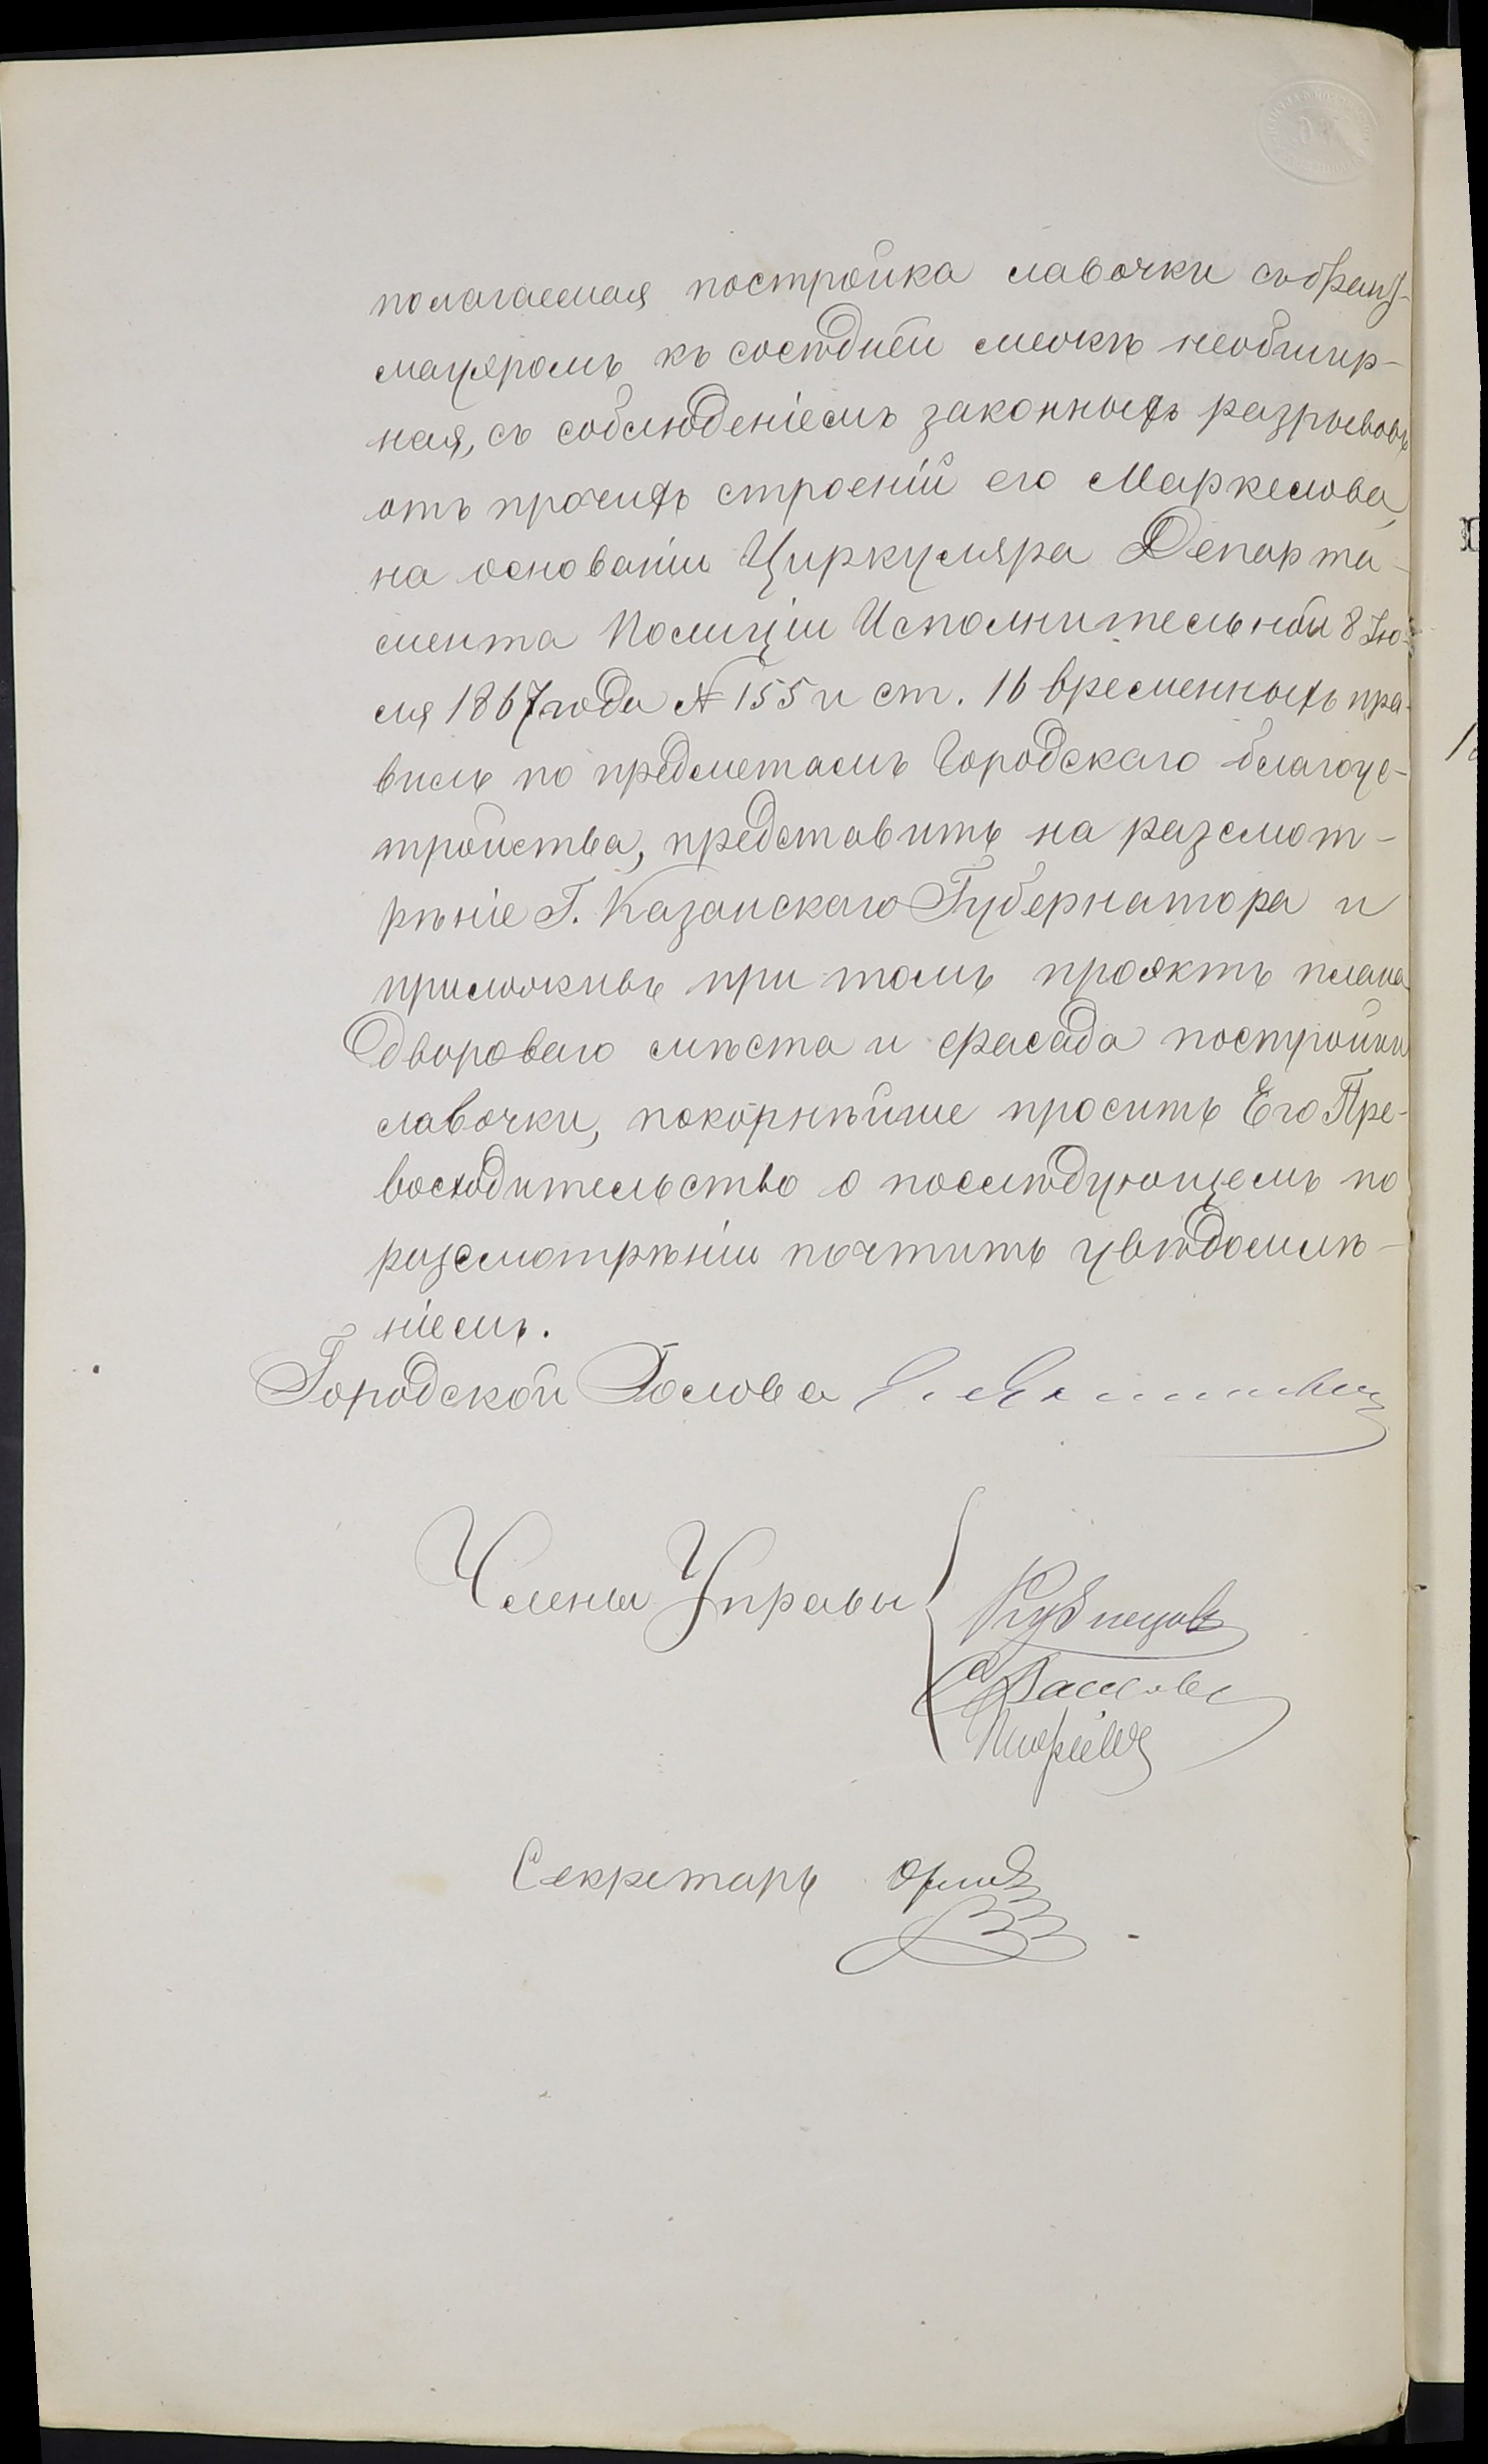 полагаемая постройка лавочки събранд-
мауэромъ къ сосѣдней межѣ необшир-
ная, съ соблюденіемъ законныхъ разрывовъ
отъ прочихъ строеній его Маркелова,
на основаніи Циркуляра Департа-
мента Полиціи Исполнительной 8 Ію-
ля 1867 года № 155 и ст. 16 временныхъ пра-
вилъ по предметамъ Городскаго благоус-
тройства, представить на разсмот-
рѣніе Г. Казанскаго Губернатора и
приложивъ при томъ проэктъ плана
Двороваго мѣста и фасада постройки
лавочки, покорнѣйше просить Его Пре-
восходительство о послѣдующемъ по
разсмотрѣніи почтить увѣдомлѣ-
ніемъ.
Городской Голова
Члены Управы
Кузнецовъ
Секретарь Орлов